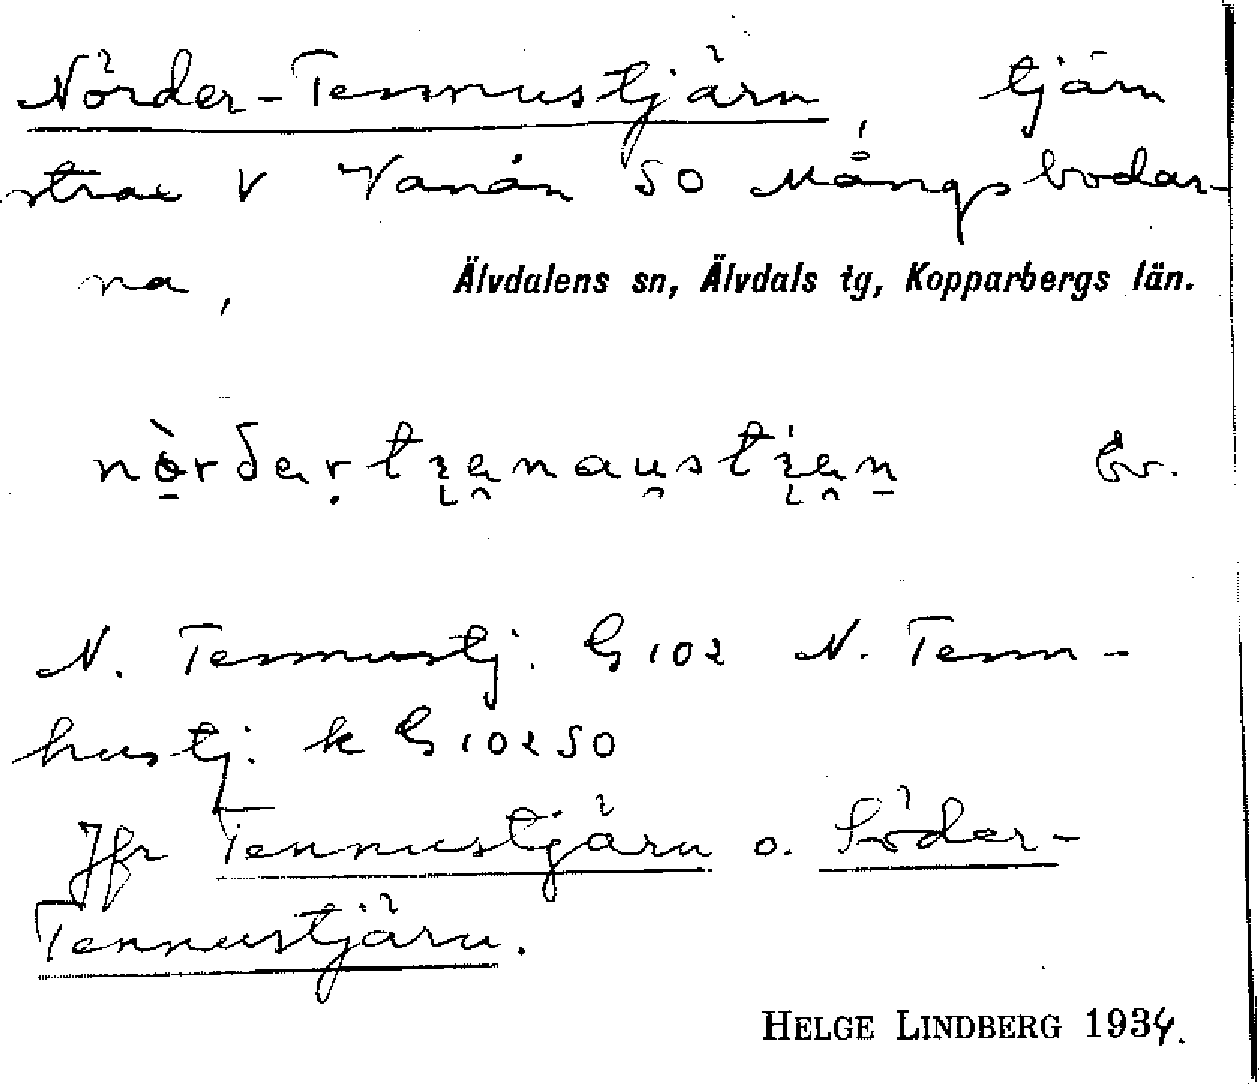 Nörder-Tennustjärn tjärn
strax V Vanån SO Mångsbodar-
na, Älvdalens sn, Älvdals tg, Kopparbergs län.
bv.
N. Tennustj. G 102 N. Tenn-
hustj. k G 102 SO
Jfr Tennustjärn o. Söder-
Tennustjärn.
HELGE LINDBERG 1934.